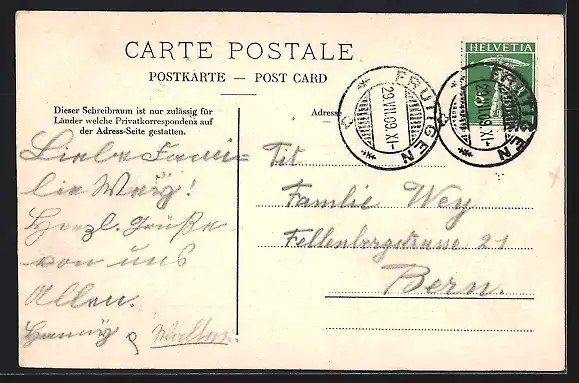 CARTE POSTALE
POSTKARTE — POST CARD
Dieser Schreibraum ist nur zulässig für
Länder welche Privatkorrespondenz auf
der Adress-Seite gestatten.
Adresse
HELVETIA
FRUTIGEN
29.VII.09.XI-
FRUTIGEN
29.VII.09.XI-
Liebe Fami-
lie Wey!
Herzl. Grüße
von uns
Allen.
Walter.
Tit
Familie Wey
Fellenbergstrasse 21
Bern.